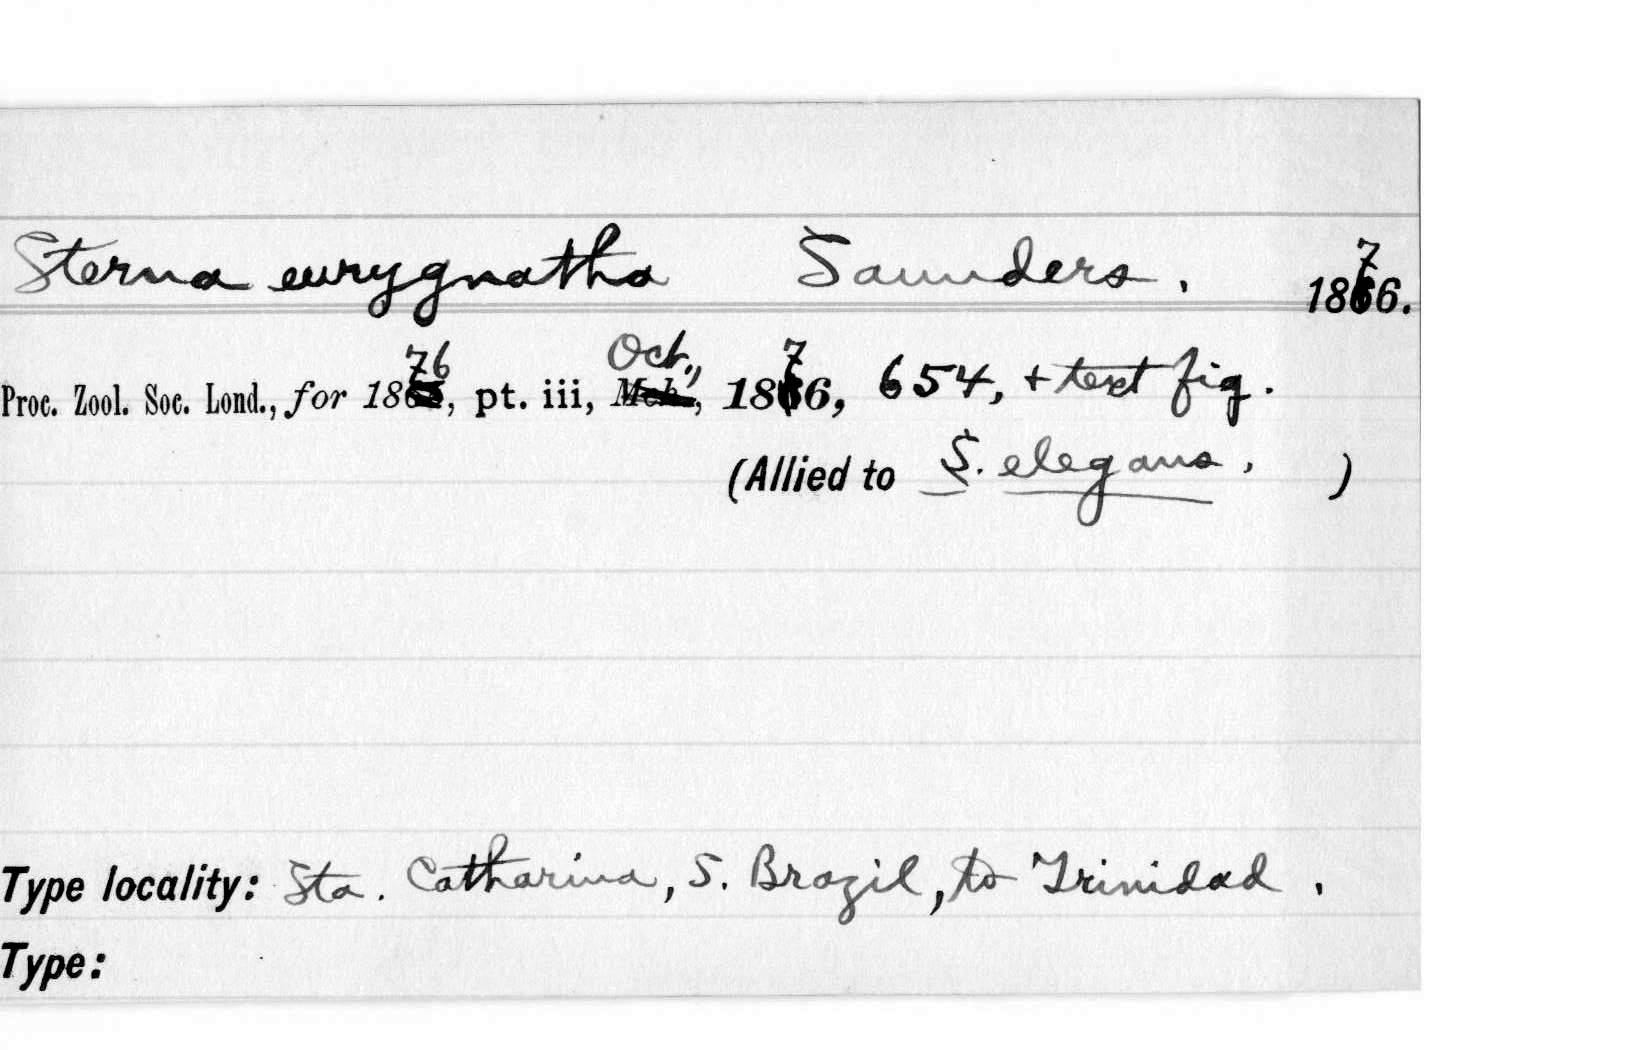 Sterna eurygnatha Saunders. 1876.
Proc. Zool. Soc. Lond., for 1876, pt. iii, Oct., 1876, 654, + text fig.
(Allied to S. elegans. )
Type locality: Sta. Catharina, S. Brazil, to Trinidad.
Type: